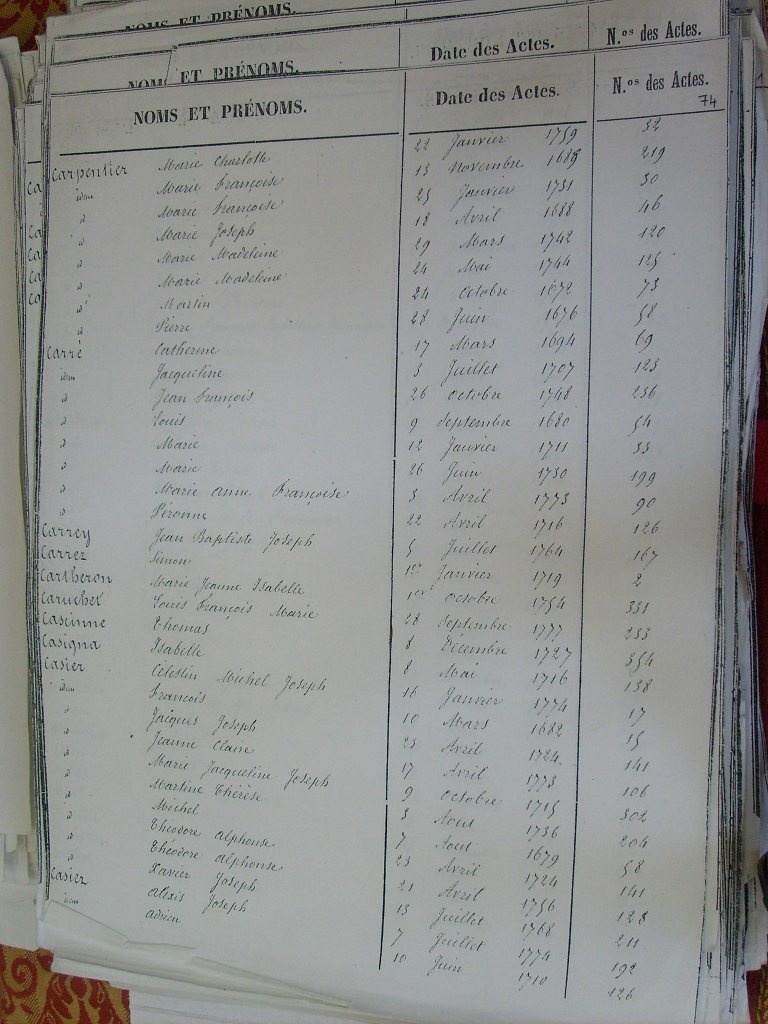 NOMS ET PRÉNOMS.
NOMS ET PRÉNOMS. Date des Actes. N.os des Actes.
NOMS ET PRÉNOMS. Date des Actes. N.os des Actes.
74
Carpentier Marie Charlotte 22 Janvier 1759 32
idem Marie Françoise 13 Novembre 1685 219
id Marie Françoise 25 Janvier 1731 30
id Marie Joseph 18 Avril 1688 46
id Marie Madeleine 29 Mars 1742 120
id Marie Madeleine 24 Mai 1744 125
id Martin 24 Octobre 1672 73
id Pierre 28 Juin 1676 58
Carré Catherine 17 Mars 1694 69
idem Jacqueline 3 Juillet 1707 123
id Jean François 26 Octobre 1748 236
id Louis 9 Septembre 1680 54
id Marie 12 Janvier 1711 33
id Marie 26 Juin 1730 199
id Marie Anne Françoise 3 Avril 1773 90
id Péronne 22 Avril 1716 126
Carrey Jean Baptiste Joseph 5 Juillet 1764 167
Carrez Simon 1er Janvier 1719 2
Cartheron Marie Jeanne Isabelle 1er Octobre 1754 331
Caruchet Louis François Marie 28 Septembre 1777 233
Cascinne Thomas 8 Décembre 1727 354
Casigna Isabelle 8 Mai 1716 138
Casier Célestin Michel Joseph 16 Janvier 1774 17
idem François 10 Mars 1682 15
id Jacques Joseph 25 Avril 1724 141
id Jeanne Claire 17 Avril 1773 106
id Marie Jacqueline Joseph 9 Octobre 1715 302
id Martine Thérèse 3 Aout 1736 204
id Michel 7 Aout 1679 58
id Théodore Alphonse 23 Avril 1724 141
id Théodore Alphonse 21 Avril 1756 123
id Xavier Joseph 13 Juillet 1768 211
Casiez Alexis Joseph 7 Juillet 1774 192
idem Adrien 10 Juin 1710 126